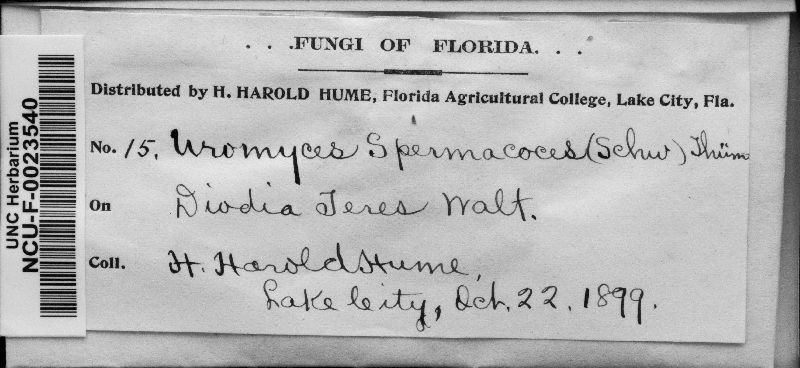 . . .FUNGI OF FLORIDA. . .
Distributed by H. HAROLD HUME, Florida Agricultural College, Lake City, Fla.
No. 15. Uromyces Spermacoces (Schw) Thüm
On Diodia Teres Walt.
Coll. H. Harold Hume,
Lake City, Oct. 22, 1899.
UNC Herbarium
NCU-F-0023540